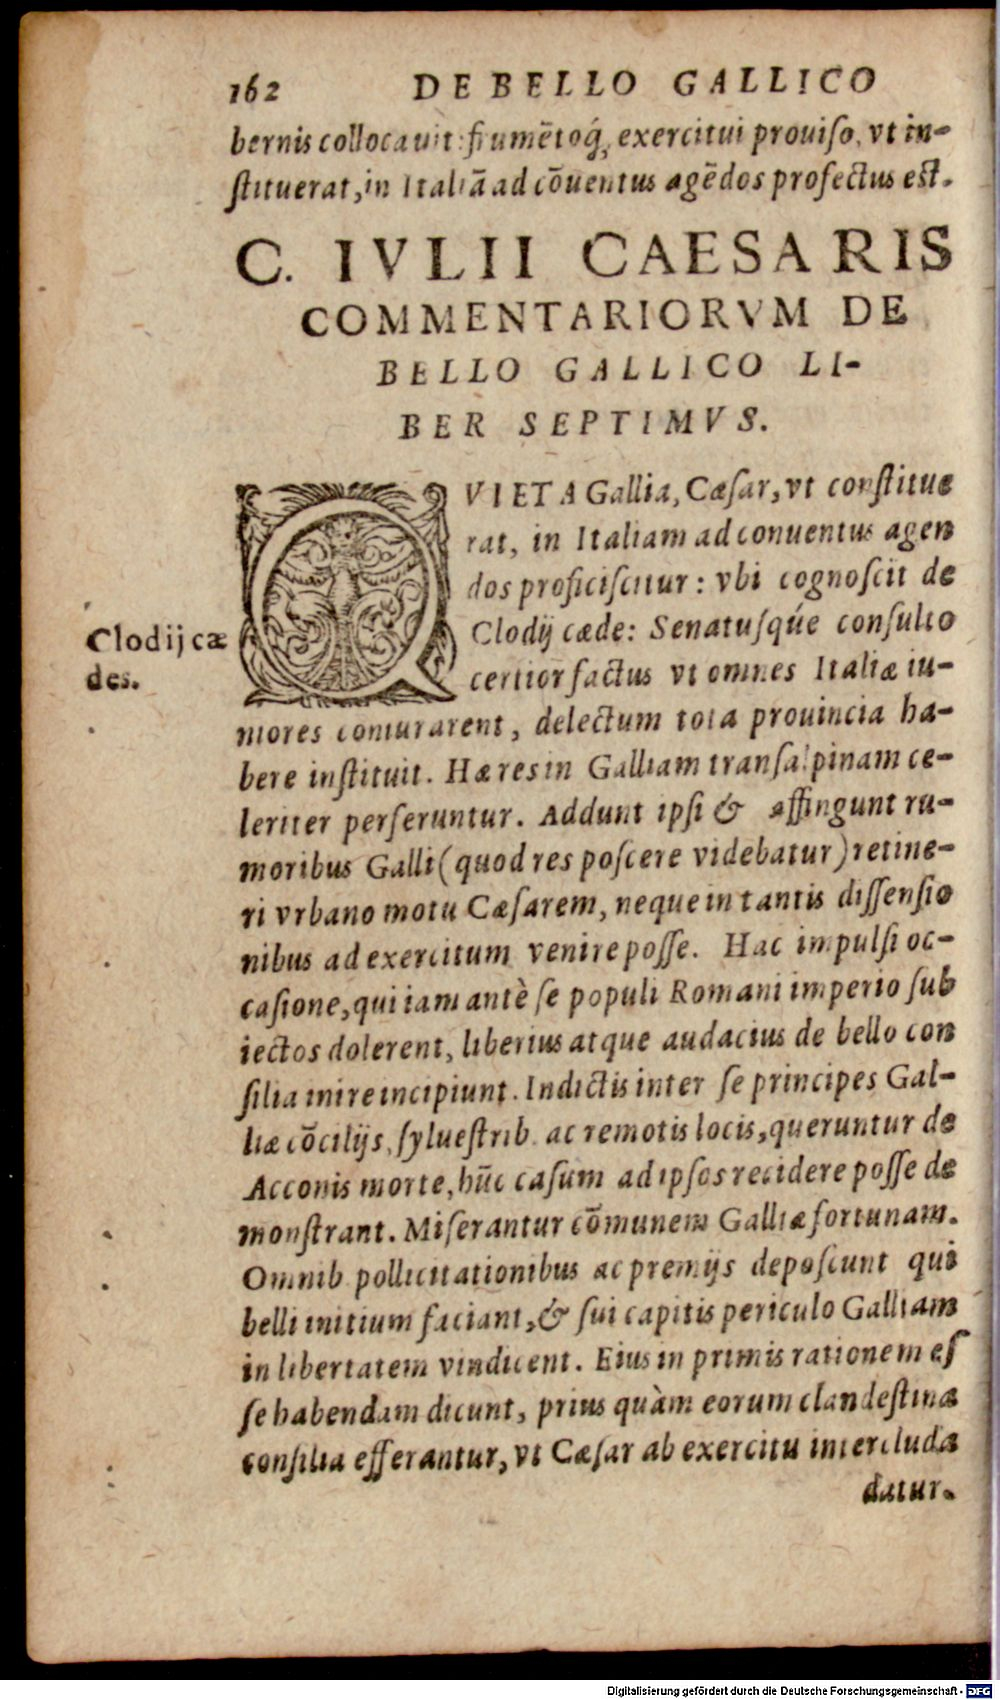 162 DE BELLO GALLICO
bernis collocauit: frumētoq́, exercitui prouiſo, vt in-
ſtituerat, in Italiā ad cōuentus agēdos profectus eſt.
C. IVLII CAESARIS
COMMENTARIORVM DE
BELLO GALLICO LI-
BER SEPTIMVS.
QVIETA Gallia, Cæſar, vt conſtitue
rat, in Italiam ad conuentus agen
dos proficiſcitur: vbi cognoſcit de
Clodij cæ
Clodij cæde: Senatuſqúe conſulto
des.
certior factus vt omnes Italiæ iu-
niores coniurarent, delectum tota prouincia ha-
bere inſtituit. Hæ res in Galliam tranſalpinam ce-
leriter perferuntur. Addunt ipſi & affingunt ru-
moribus Galli (quod res poſcere videbatur) retine-
ri vrbano motu Cæſarem, neque in tantis diſſenſio
nibus ad exercitum venire poſſe. Hac impulſi oc-
caſione, qui iam antè ſe populi Romani imperio ſub
iectos dolerent, liberius atque audacius de bello con
ſilia inire incipiunt. Indictis inter ſe principes Gal-
liæ cōcilijs, ſylueſtrib. ac remotis locis, queruntur de
Acconis morte, hūc caſum ad ipſos recidere poſſe de
monſtrant. Miſerantur cōmunem Galliæ fortunam.
Omnib. pollicitationibus ac premijs depoſcunt qui
belli initium faciant, & ſui capitis periculo Galliam
in libertatem vindicent. Eius in primis rationem eſ
ſe habendam dicunt, prius quàm eorum clandeſtina
conſilia efferantur, vt Cæſar ab exercitu intercluda
datur.
Digitalisierung gefördert durch die Deutsche Forschungsgemeinschaft - DFG